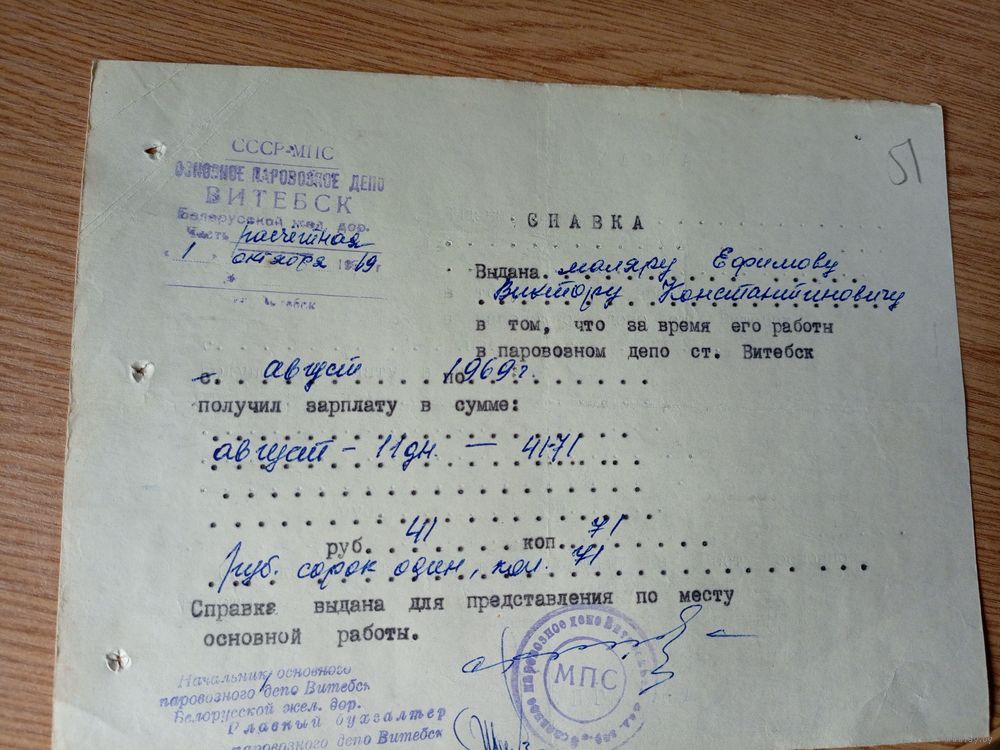 51
СССР-МПС
ОСНОВНОЕ ПАРОВОЗНОЕ ДЕПО
ВИТЕБСК
Белорусской жел. дор.
Часть расчётная
"1" октября 1969
СНАВКА
Выдана маляру Ефимову
Виктору Константиновичу
в том, что за время его работы
в паровозном депо ст. Витебск
с август по 1969г.
получил зарплату в сумме:
август - 11дн. - 41-71
руб. 41 коп. 71
руб. сорок один, коп. 71
Справка выдана для представления по месту
основной работы.
МПС
Начальник основного
паровозного депо Витебск
Белорусской жел. дор.
Главный бухгалтер
паровозного депо Витебск